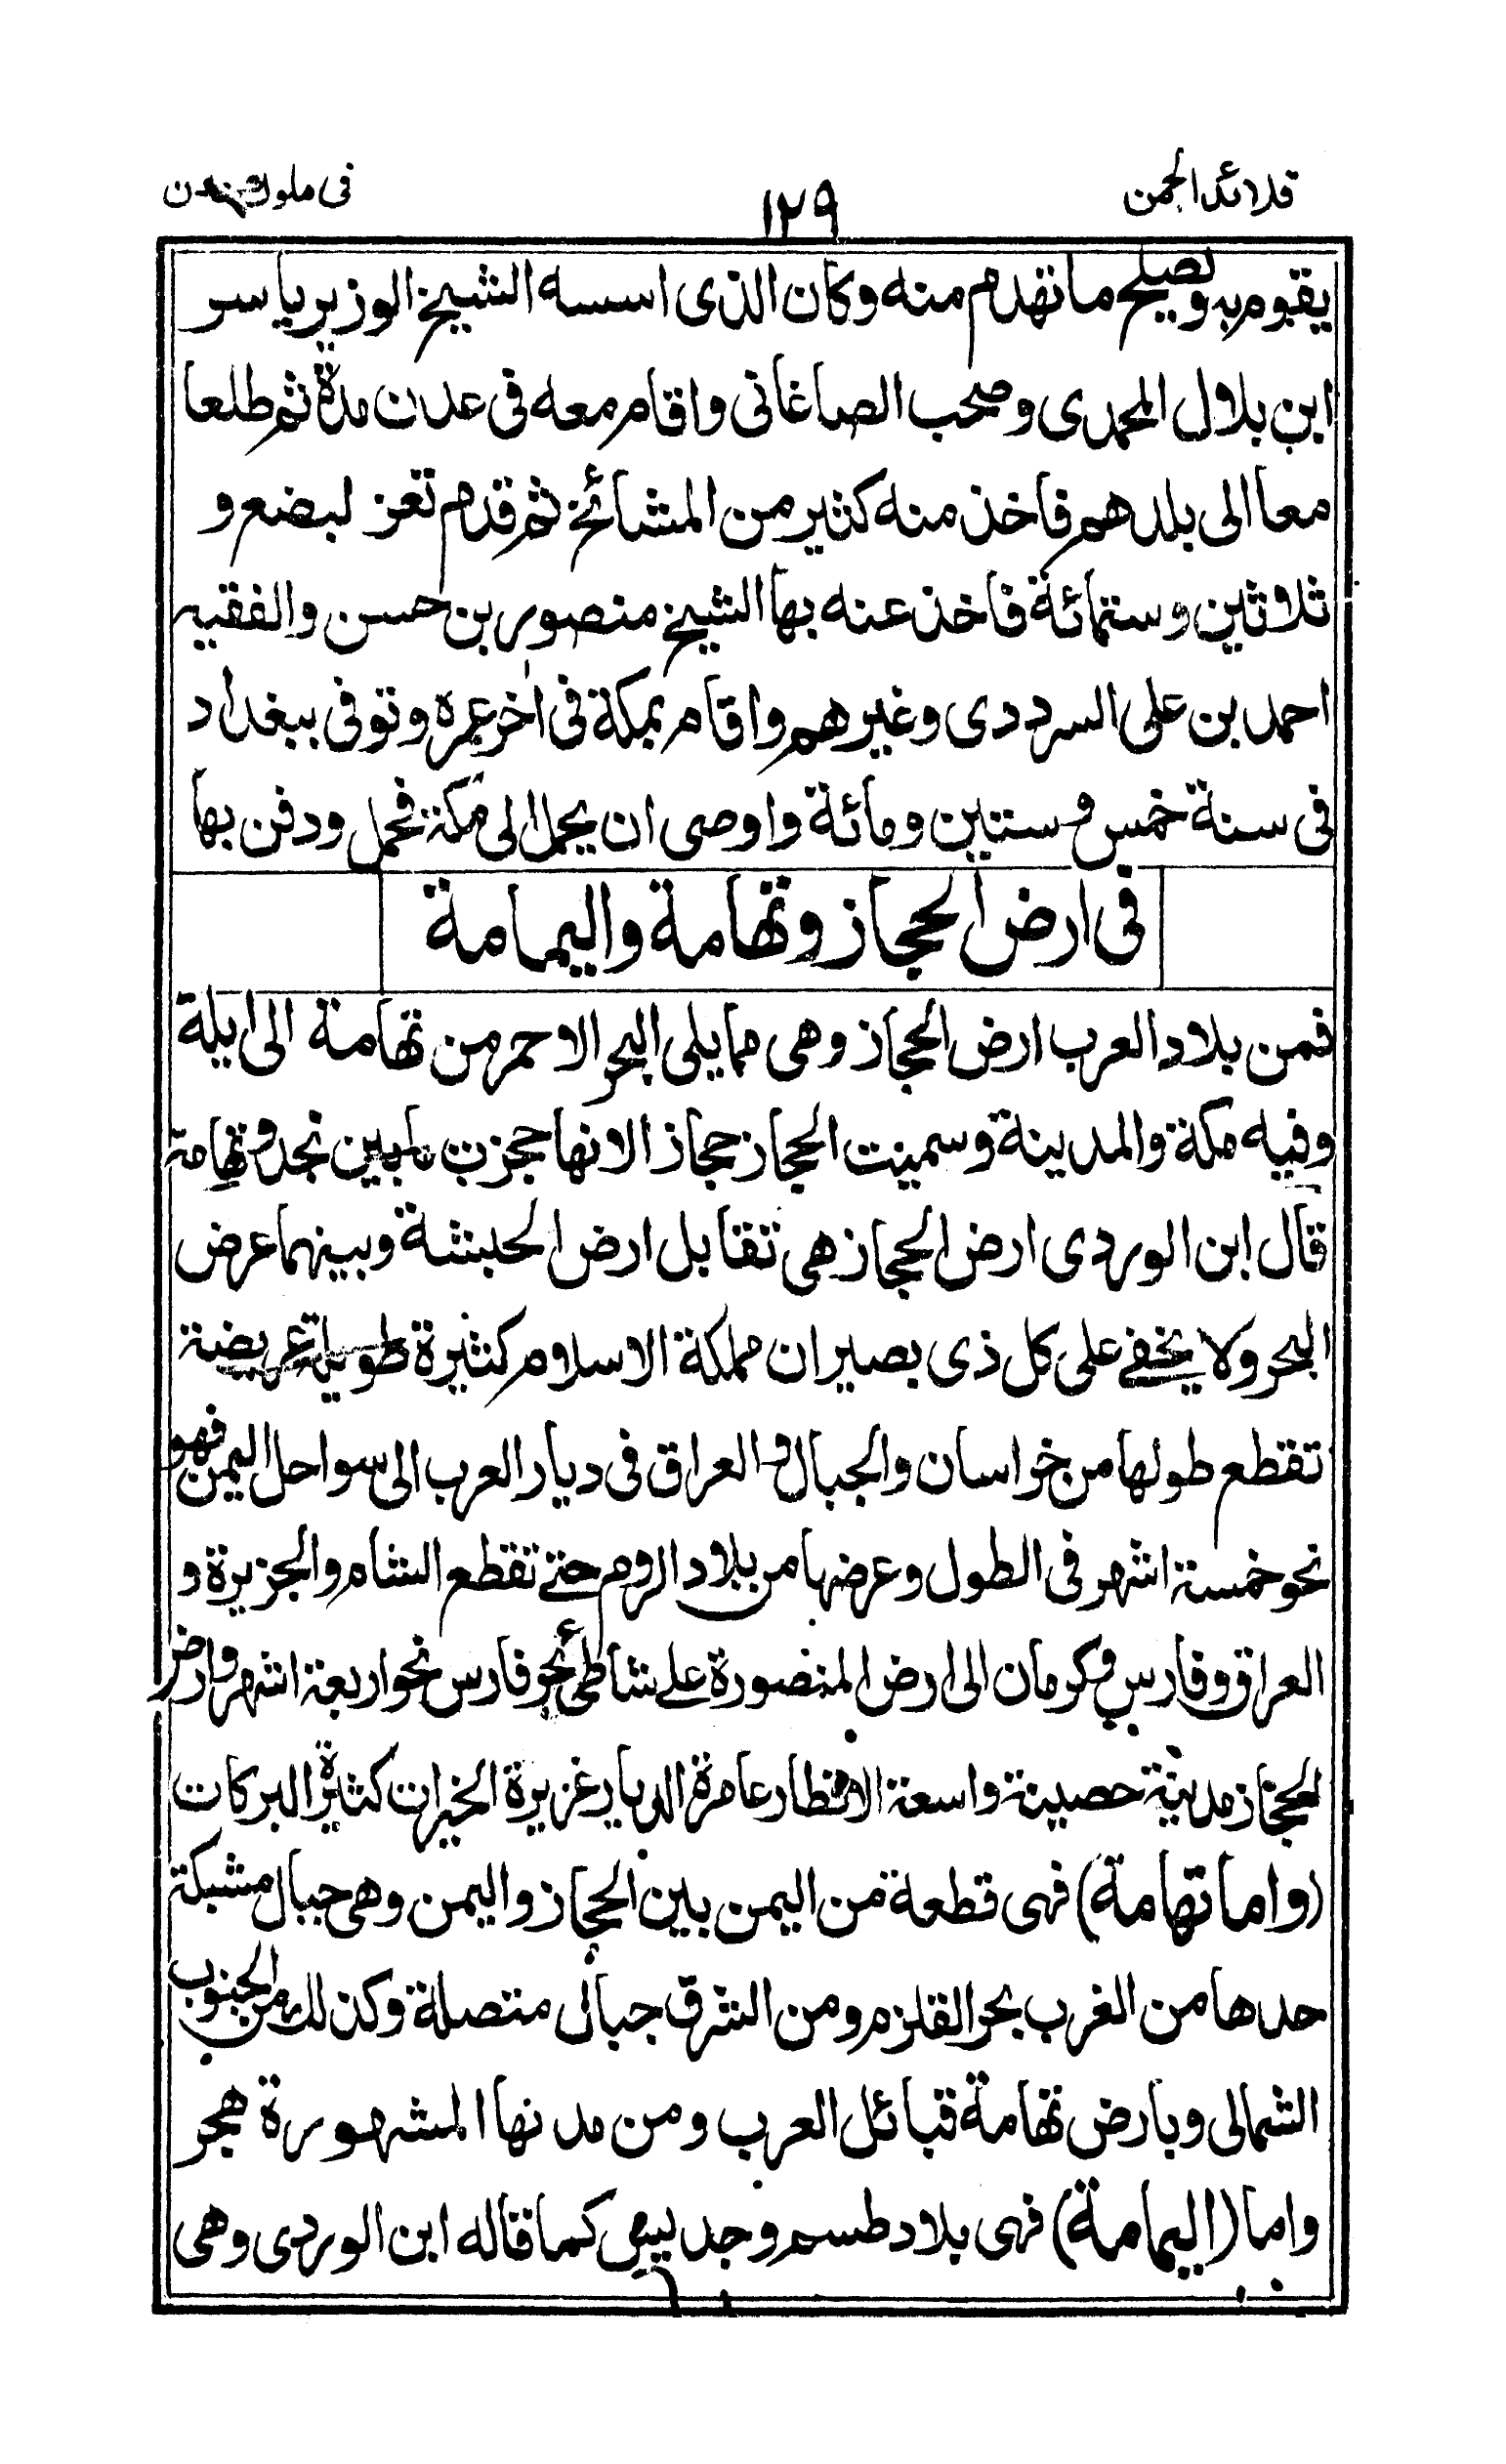 قلائد الجمن
١٢٩
فى ملوك عدن
يقوم به ويصلح ما تهدم منه وكان الذى اسسه الشيخ الوزير ياسر
ابن بلال المحمدى وصحب الصاغانى واقام معه فى عدن مدة ثم طلعا
معا الى بلدهم فاخذ منه كثير من المشائخ ثم قدم تعز لبضع و
ثلاثين وستمائة فاخذ عنه بها الشيخ منصور بن حسن والفقيه
احمد بن على السرددى وغيرهم واقام بمكة فى اخر عمره وتوفى ببغداد
فى سنة خمس وستين ومائة واوصى ان يحمل الى مكة فحمل ودفن بها
فى ارض الحجاز وتهامة واليمامة
فمن بلاد العرب ارض الحجاز وهى مما يلى البحر الاحمر من تهامة الى ايلة
وفيه مكة والمدينة وسميت الحجاز حجاز الانها حجزت ما بين نجد وتهامة
قال ابن الوردى ارض الحجاز هى تقابل ارض الحبشة وبينهما عرض
البحر ولا يخفى على كل ذى بصير ان مملكة الاسلام كثيرة طويلة عريضة
تقطع طولها من خراسان والجبال والعراق فى ديار العرب الى سواحل اليمن فهو
نحو خمسة اشهر فى الطول وعرضها من بلاد الروم حتى تقطع الشام والجزيرة و
العراق وفارس وكرمان الى ارض المنصورة على شاطئ بحر فارس نحو اربعة اشهر وارض
الحجاز مدينة حصينة واسعة الاقطار عامرة الديار غزيرة الخيرات كثيرة البركات
(واما تهامة) فهى قطعة من اليمن بين الحجاز واليمن وهى جبال مشبكة
حدها من الغرب بحر القلزم ومن الشرق جبال متصلة وكذلك من الجنوب
الشمالى وبارض تهامة قبائل العرب ومن مدنها المشهورة هجر
واما (اليمامة) فهى بلاد طسم وجديس كما قاله ابن الوردى وهى